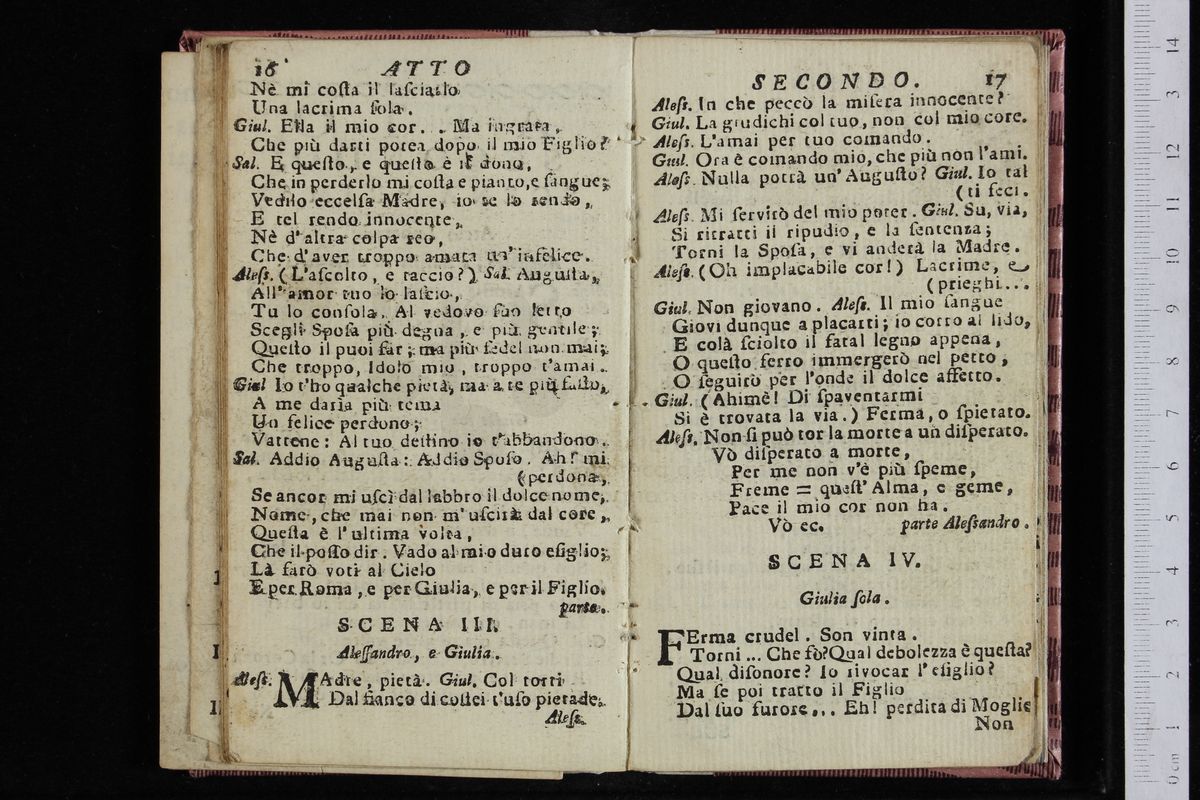 16 ATTO
Nè mi costa il lasciarlo
Una lacrima sola.
Giul. Ella il mio cor. . Ma ingrata,
Che più darti potea dopo il mio Figlio?
Sal. E questo, e questo è il dono,
Che in perderlo mi costa e pianto, e sangue;
Vedilo eccelsa Madre, io te lo rendo,
E tel rendo innocente,
Nè d'altra colpa reo,
Che d'aver troppo amata un'infelice.
Aless. (L'ascolto, e taccio?) Sal. Augusta,
All'amor tuo lo lascio,
Tu lo consola. Al vedovo suo letto
Scegli Sposa più degna, e più gentile;
Questo il puoi far; ma più fedel non mai;
Che troppo, Idolo mio, troppo t'amai.
Giul Io t'ho qualche pietà, ma a te più fasto,
A me daria più tema
Un felice perdono;
Vattene: Al tuo destino io t'abbandono.
Sal. Addio Augusta: Addio Sposo. Ah! mi
(perdona,
Se ancor mi uscì dal labbro il dolce nome,
Nome, che mai non m'uscirà dal core,
Questa è l'ultima volta,
Che il posso dir. Vado al mio duro esiglio;
Là farò voti al Cielo
E per Roma, e per Giulia, e per il Figlio.
parte.
SCENA III.
Alessandro, e Giulia.
Aless. MAdre, pietà. Giul. Col torti
Dal fianco di costei t'uso pietade.
Aless.
SECONDO. 17
Aless. In che peccò la misera innocente?
Giul. La giudichi col tuo, non col mio core.
Aless. L'amai per tuo comando.
Giul. Ora è comando mio, che più non l'ami.
Aless. Nulla potrà un'Augusto? Giul. Io tal
(ti feci.
Aless. Mi servirò del mio poter. Giul. Su, via,
Si ritratti il ripudio, e la sentenza;
Torni la Sposa, e vi anderà la Madre.
Aless. (Oh implacabile cor!) Lacrime, e
(prieghi...
Giul. Non giovano. Aless. Il mio sangue
Giovi dunque a placarti; io corro al lido,
E colà sciolto il fatal legno appena,
O questo ferro immergerò nel petto,
O seguirò per l'onde il dolce affetto.
Giul. (Ahimè! Di spaventarmi
Si è trovata la via.) Ferma, o spietato.
Aless. Non si può tor la morte a un disperato.
Vò disperato a morte,
Per me non v'è più speme,
Freme = quest'Alma, e geme,
Pace il mio cor non ha.
Vò ec. parte Alessandro.
SCENA IV.
Giulia sola.
FErma crudel. Son vinta.
Torni ... Che fò? Qual debolezza è questa?
Qual disonore? Io rivocar l'esiglio?
Ma se poi tratto il Figlio
Dal suo furore... Eh! perdita di Moglie
Non